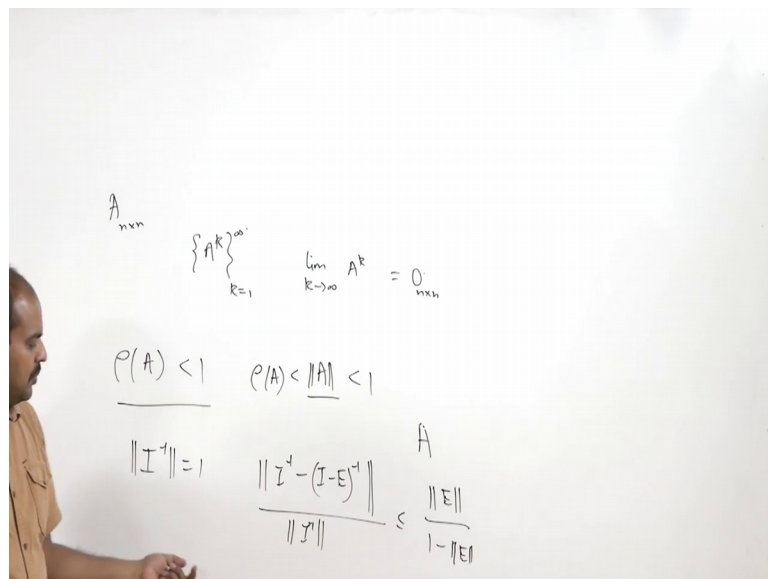 A_{n×n}
{A^k}_{k=1}^∞ lim_{k→∞} A^k = 0_{n×n}
ρ(A) < 1 ρ(A) < ||A|| < 1
A
||I^{-1}|| = 1 ||I^{-1} - (I-E)^{-1}|| / ||I^{-1}|| ≤ ||E|| / 1 - ||E||